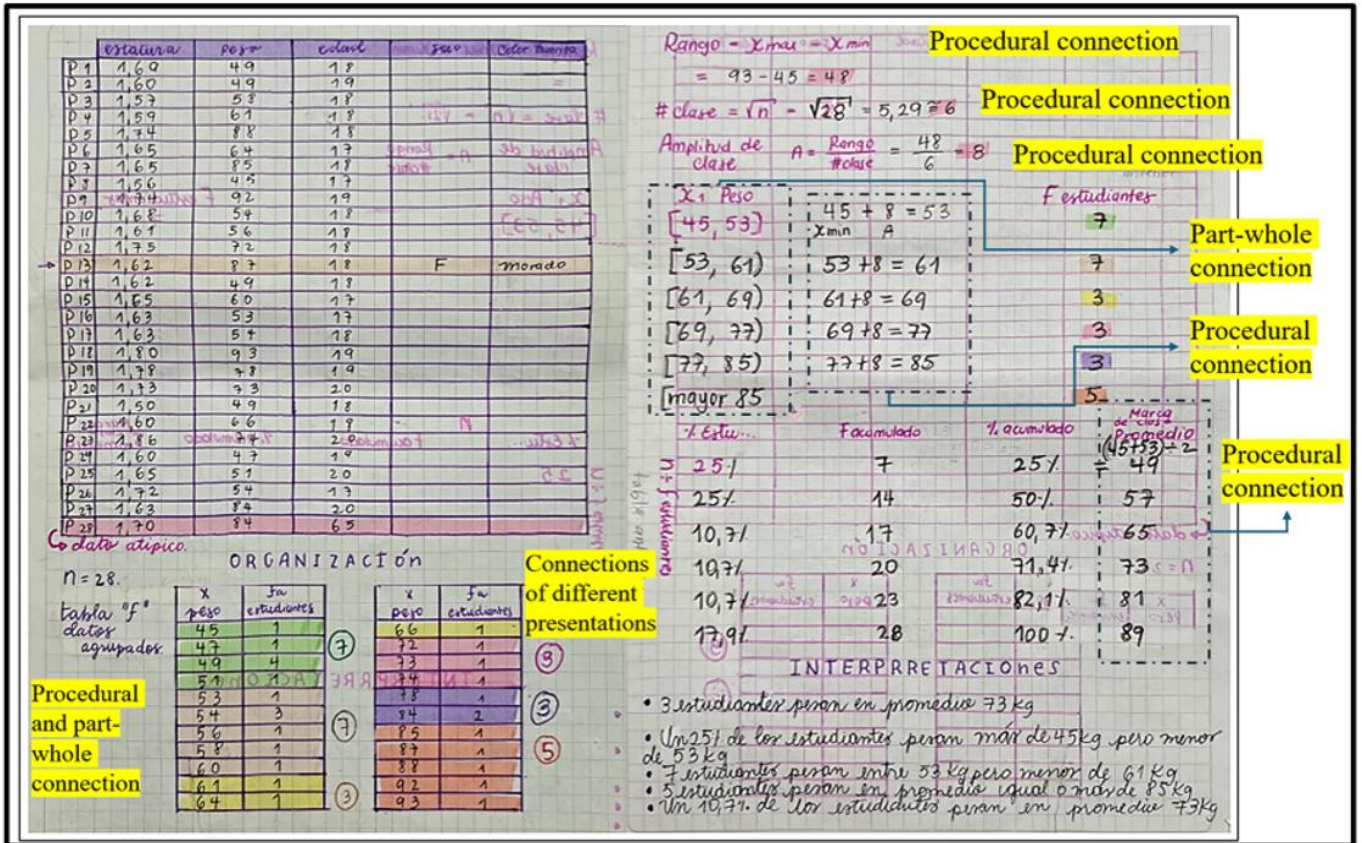 estatura peso edad sexo Color
P1 1,69 49 18
P2 1,60 49 19
P3 1,57 58 18
P4 1,59 61 18
P5 1,74 88 18
P6 1,65 64 17
P7 1,65 85 18
P8 1,56 45 17
P9 92 19
P10 1,68 54 18
P11 1,61 56 18
P12 1,75 72 18
P13 1,62 87 18 F morado
P14 1,62 49 18
P15 1,65 60 17
P16 1,63 53 17
P17 1,63 54 18
P18 1,80 93 19
P19 1,78 78 19
P20 1,73 73 20
P21 1,50 49 18
P22 1,60 66 19
P23 1,86
P24 1,60 47 19
P25 1,65 51 20
P26 1,72 54 17
P27 1,63 84 20
P28 1,70 84 65
dato atípico.
ORGANIZACIÓn
n = 28.
tabla "f"
datos
agrupados
x fa
peso estudiantes
45 1
47 1
49 4
51 1
53 1
54 3
56 1
58 1
60 1
61 1
64 1
7
7
3
x fa
peso estudiantes
66 1
72 1
73 1
74 1
78 1
84 2
85 1
87 1
88 1
92 1
93 1
3
5
Procedural
and part-
whole
connection
Connections
of different
presentations
Rango = Xmax - Xmin
Procedural connection
= 93 - 45 = 48
# clase = √n = √28 = 5,29 ≅ 6
Procedural connection
Amplitud de
clase
A = Rango/#clase = 48/6 = 8
Procedural connection
X1 Peso F estudiantes
[45, 53) 45 + 8 = 53 7
Xmin A
[53, 61) 53 +8 = 61 7
[61, 69) 61 +8 = 69 3
[69, 77) 69 +8 = 77 3
[77, 85) 77 +8 = 85 3
[mayor 85 5
Part-whole
connection
Procedural
connection
% Estu... F acumulado % acumulado Marca
de clase
Promedio
(45+53)÷2
25% 7 25% = 49
25% 14 50% 57
10,7% 17 60,7% 65
10,7% 20 71,4% 73
10,7% 23 82,1% 81
17,9% 28 100% 89
Procedural
connection
INTERPRRETACIOnes
• 3 estudiantes pesan en promedio 73 kg
• Un 25% de los estudiantes pesan más de 45kg pero menor
de 53 kg
• 7 estudiantes pesan entre 53 kg pero menor de 61 kg
• 5 estudiantes pesan en promedio igual o mas de 85 kg
• Un 10,7% de los estudiantes pesan en promedio 73kg